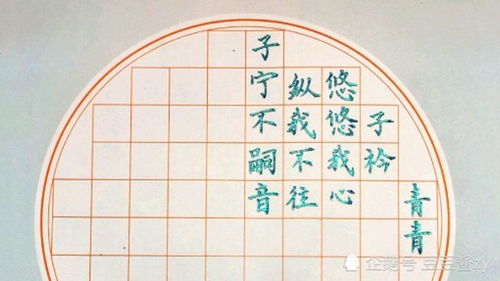 青青
子衿
悠悠我心
纵我不往
子宁不嗣音
企鹅号 豆豆爸zy